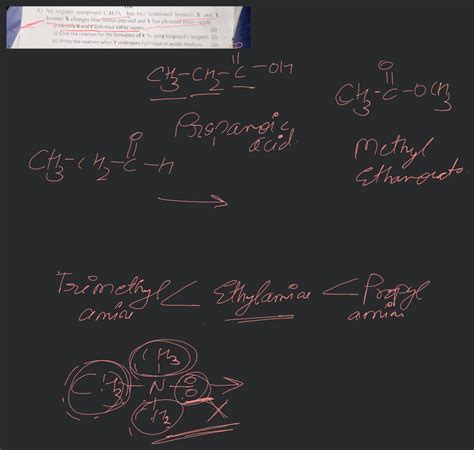 A) An organic compound C3H6O2 has two functional isomers X and Y.
Isomer X changes blue litmus into red and Y has pleasant fruity smell.
i) Identify X and Y with their IUPAC names. (2)
ii) Give the reaction for the formation of X by using Grignard's reagent. (2)
iii) Write the reaction when Y undergoes hydrolysis in acidic medium.
O
CH3-CH2-C-OH
Propanoic acid.
O
CH3-C-OCH3
Methyl
Ethanoate
O
CH3-CH2-C-H
Trimethyl amine < Ethylamine < Propyl amine
CH3
CH3-N
CH2
X